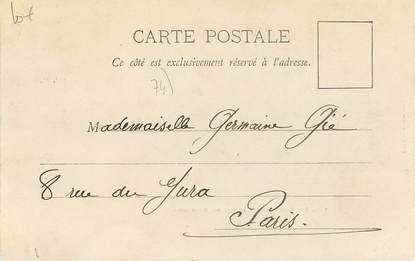 lot
CARTE POSTALE
Ce côté est exclusivement réservé à l'adresse.
74)
Mademoiselle Germaine Gié
8 rue du Jura
Paris.